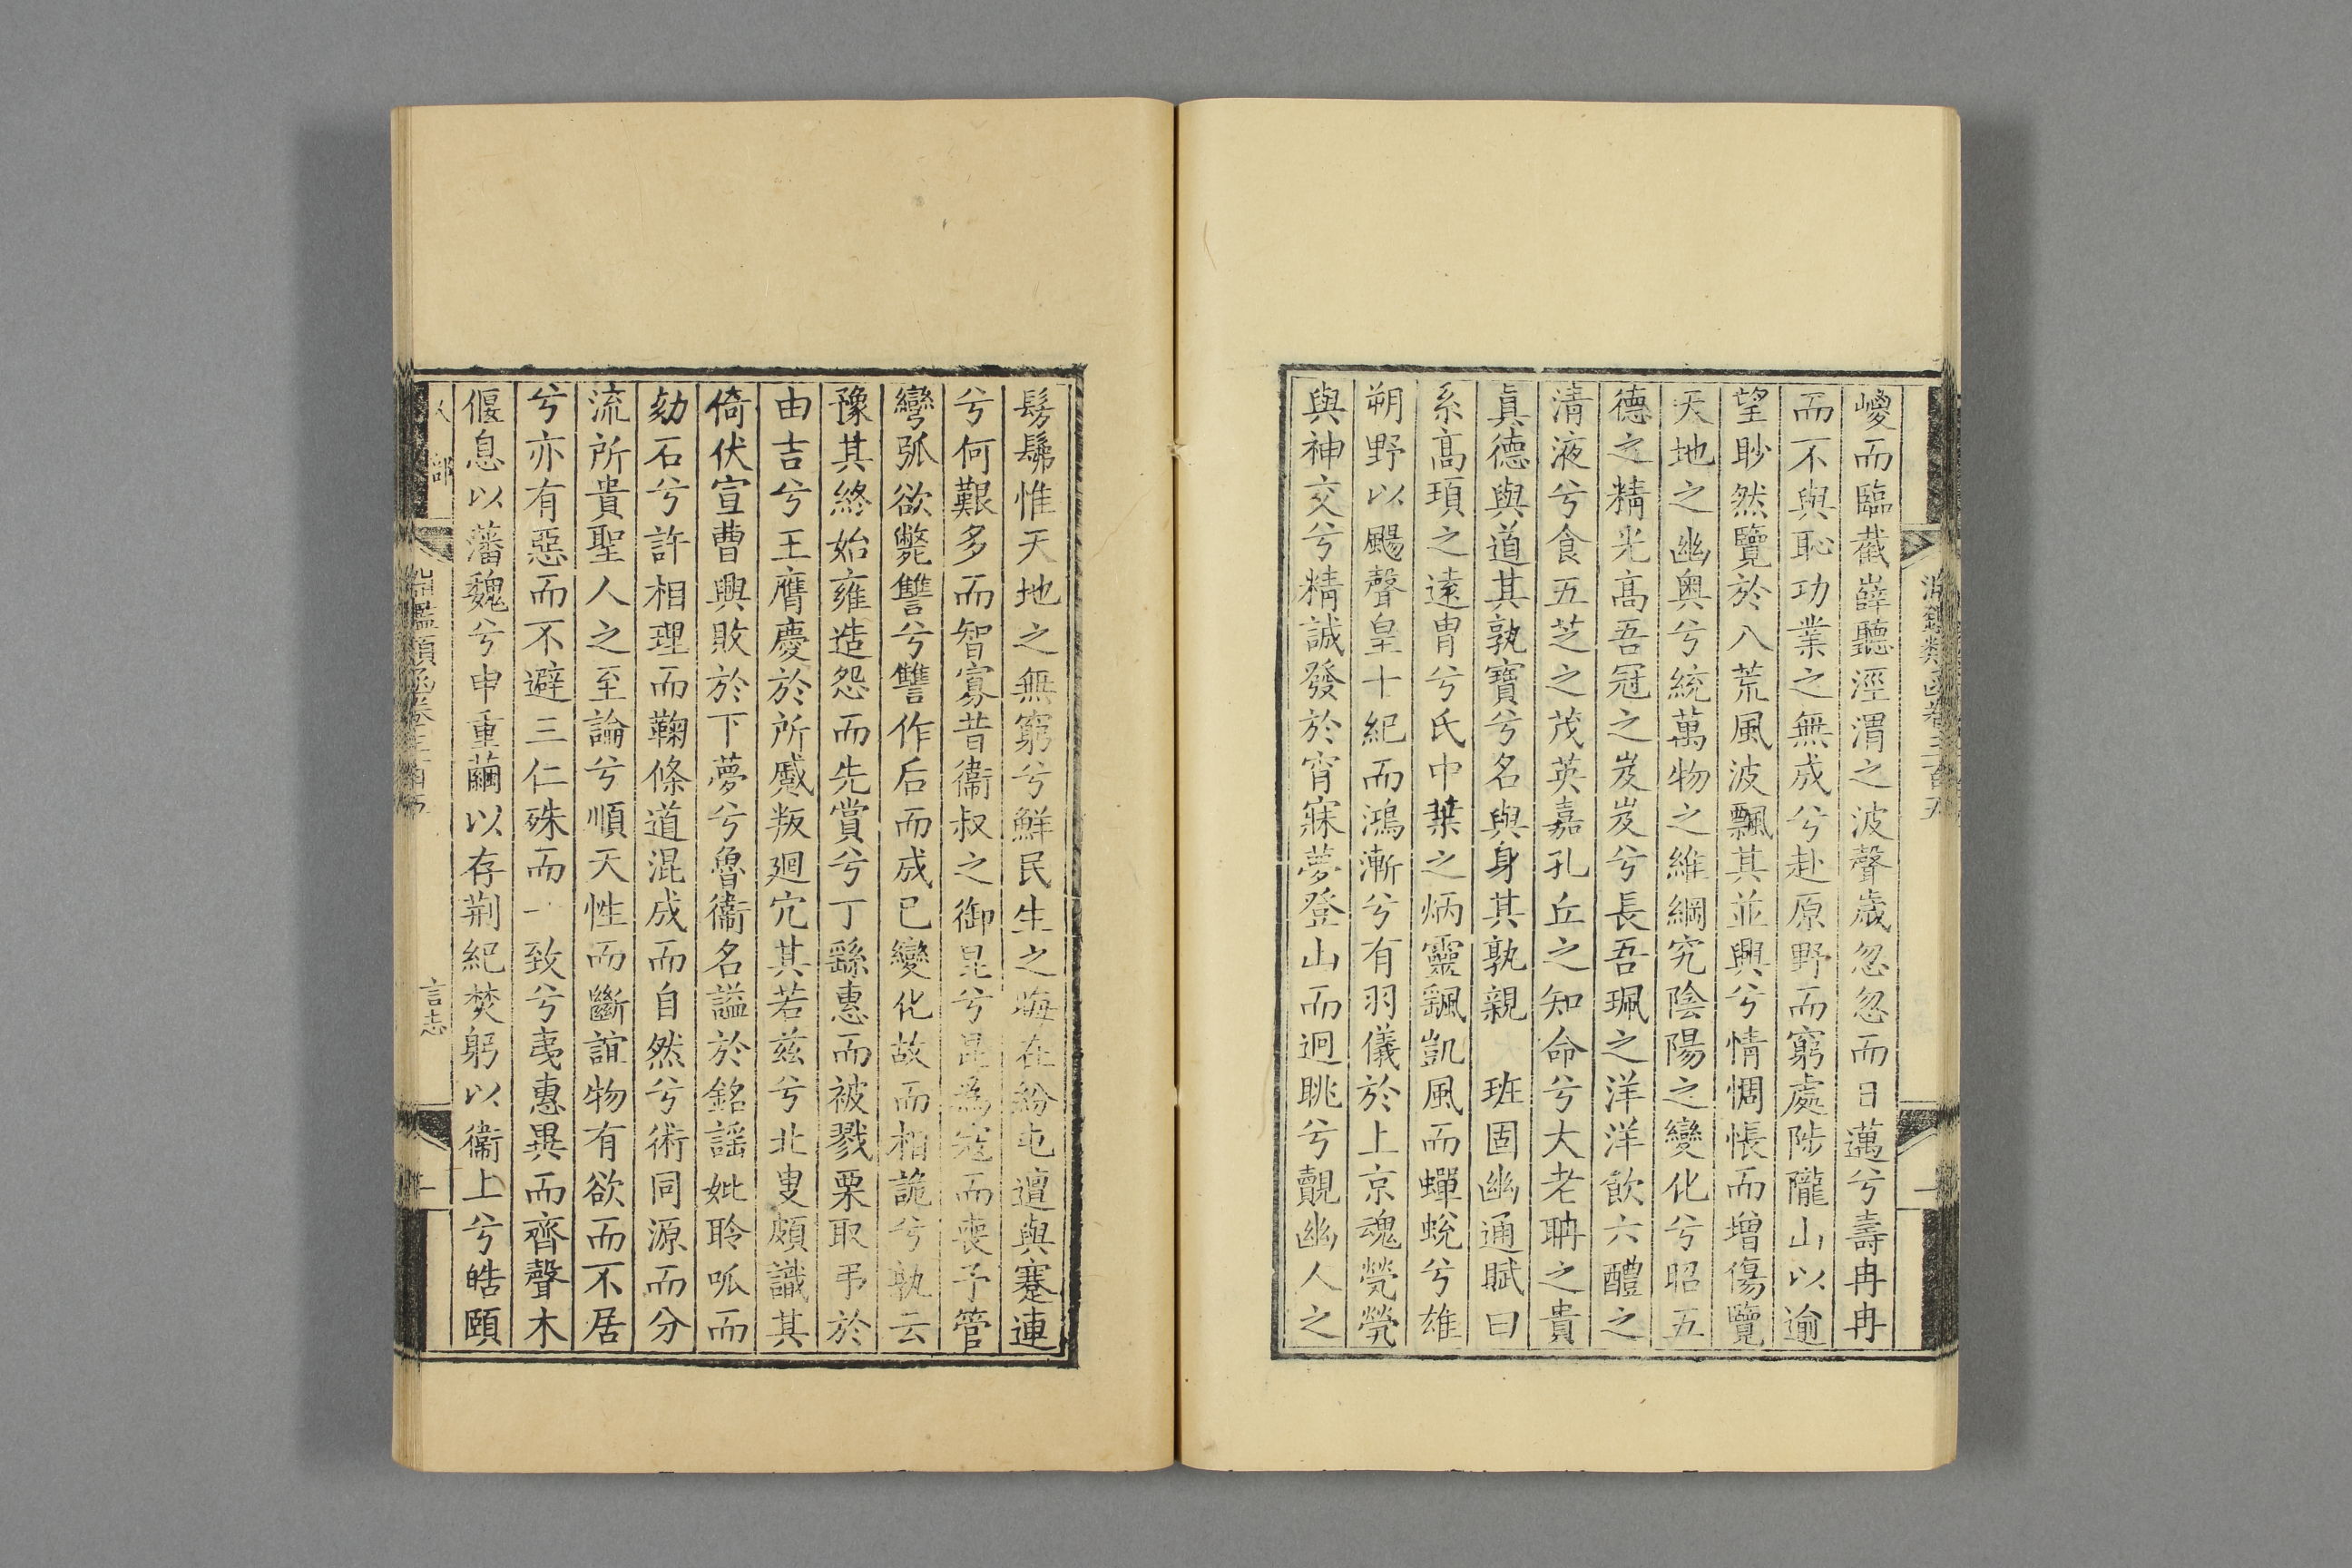 淵鑑類函卷三百五
嵕而臨巀嶭聽涇渭之波聲歲忽忽而日邁兮壽冉冉
而不與恥功業之無成兮赴原野而窮處陟隴山以逾
望眇然覽於八荒風波飄其並興兮情惆悵而增傷覽
天地之幽奧兮統萬物之維綱究陰陽之變化兮昭五
德之精光高吾冠之岌岌兮長吾珮之洋洋飲六醴之
清液兮食五芝之茂英嘉孔丘之知命兮大老聃之貴
眞德與道其孰寶兮名與身其孰親 班固幽通賦曰
系高頊之遠冑兮氏中葉之炳靈飖凱風而蟬蛻兮雄
朔野以颺聲皇十紀而鴻漸兮有羽儀於上京魂煢煢
與神交兮精誠發於宵寐夢登山而迥眺兮覿幽人之
髣髴惟天地之無窮兮鮮民生之晦在紛屯邅與蹇連
兮何艱多而智寡昔衞叔之御昆兮昆爲寇而喪予管
彎弧欲斃讐兮讐作后而成已變化故而相詭兮孰云
豫其終始雍造怨而先賞兮丁繇惠而被戮栗取弔於
由吉兮王膺慶於所慼叛廻宂其若茲兮北叟頗識其
倚伏宣曹興敗於下夢兮魯衞名謚於銘謡妣聆呱而
劾石兮許相理而鞠條道混成而自然兮術同源而分
流所貴聖人之至論兮順天性而斷誼物有欲而不居
兮亦有惡而不避三仁殊而一致兮夷惠異而齊聲木
偃息以藩魏兮申重繭以存荆紀焚躬以衞上兮皓頤
人部
淵鑑類函卷三百五
言志